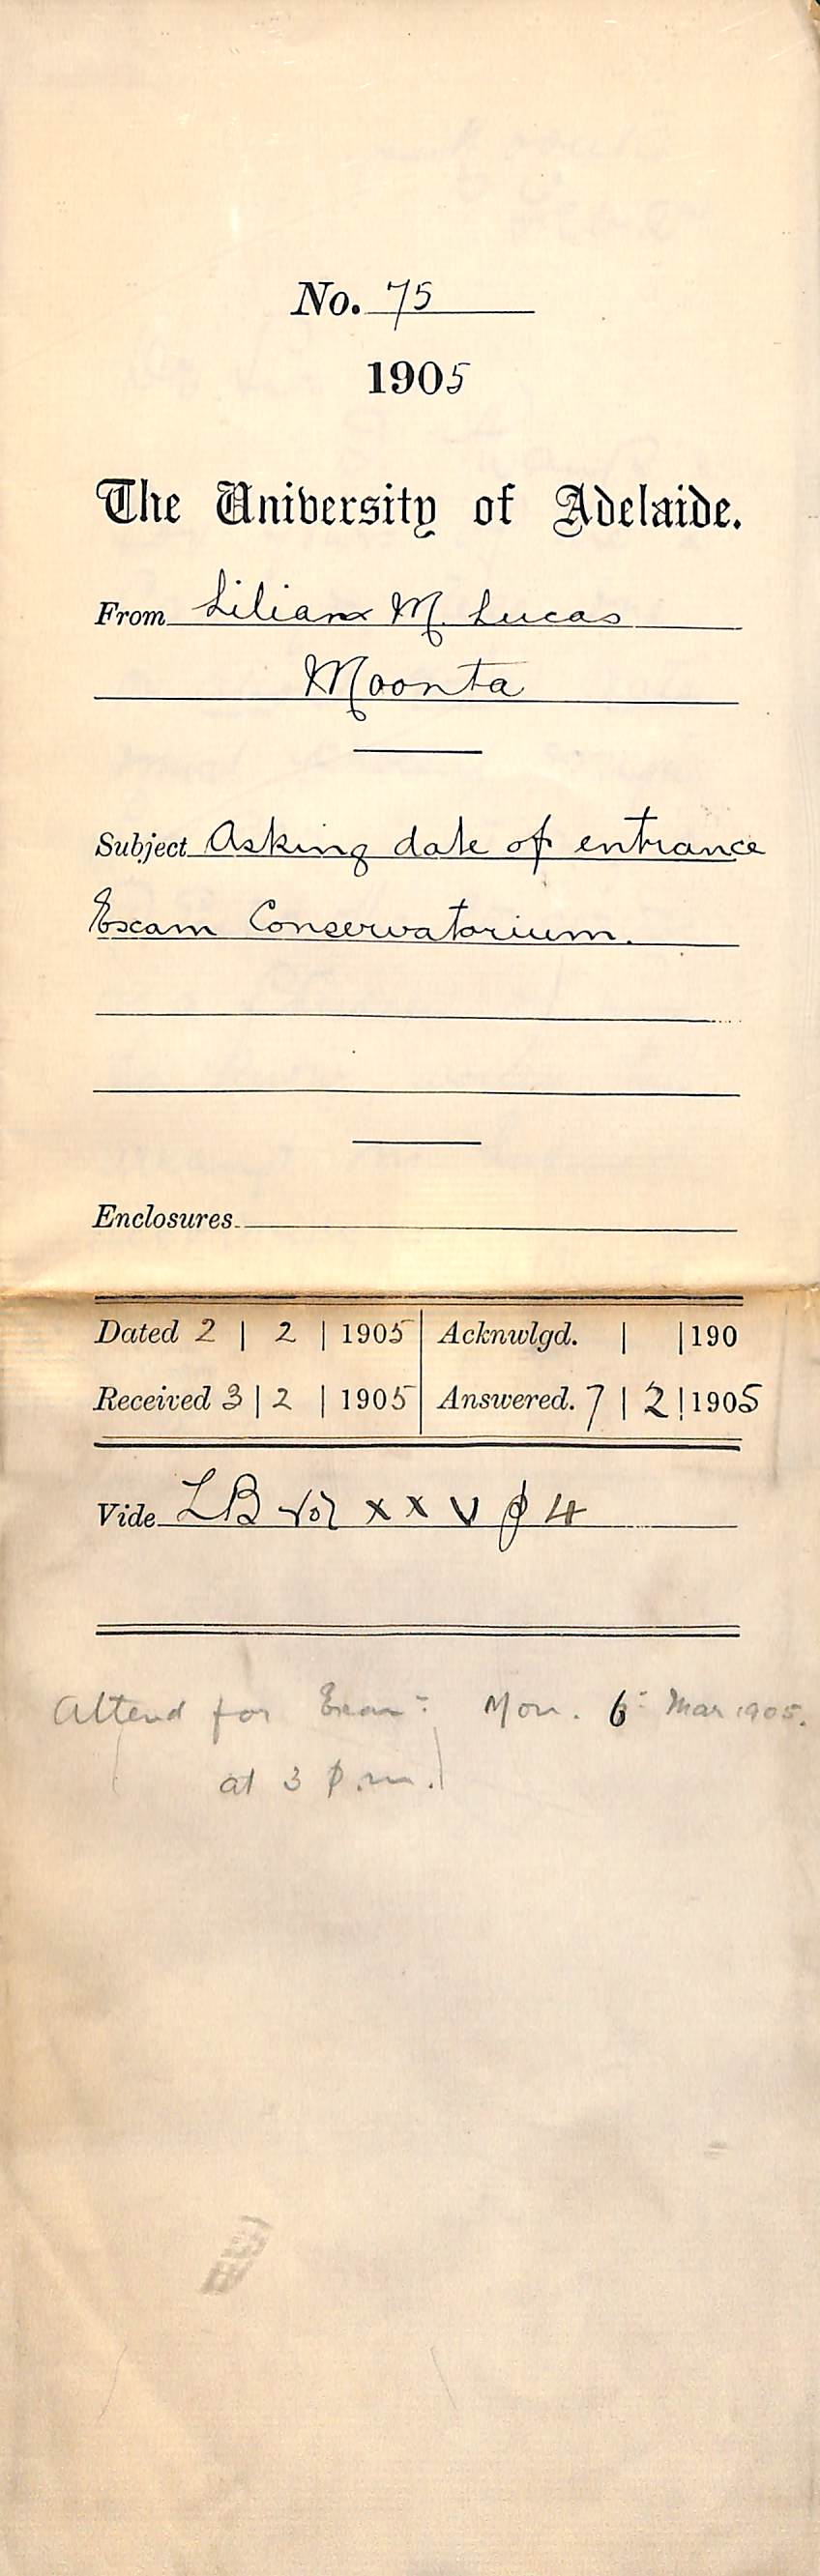 No. 75
1905
The University of Adelaide.
From Lilian M. Lucas
Moonta
Subject Asking date of entrance
Exam Conservatorium.
Enclosures.
Dated 2 | 2 | 1905 Acknwlgd. | | 190
Received 3 | 2 | 1905 Answered. 7 | 2 | 1905
Vide LB Vol XXV p 4
Attend for Exam: Mon. 6: Mar 1905.
(at 3 p.m.)